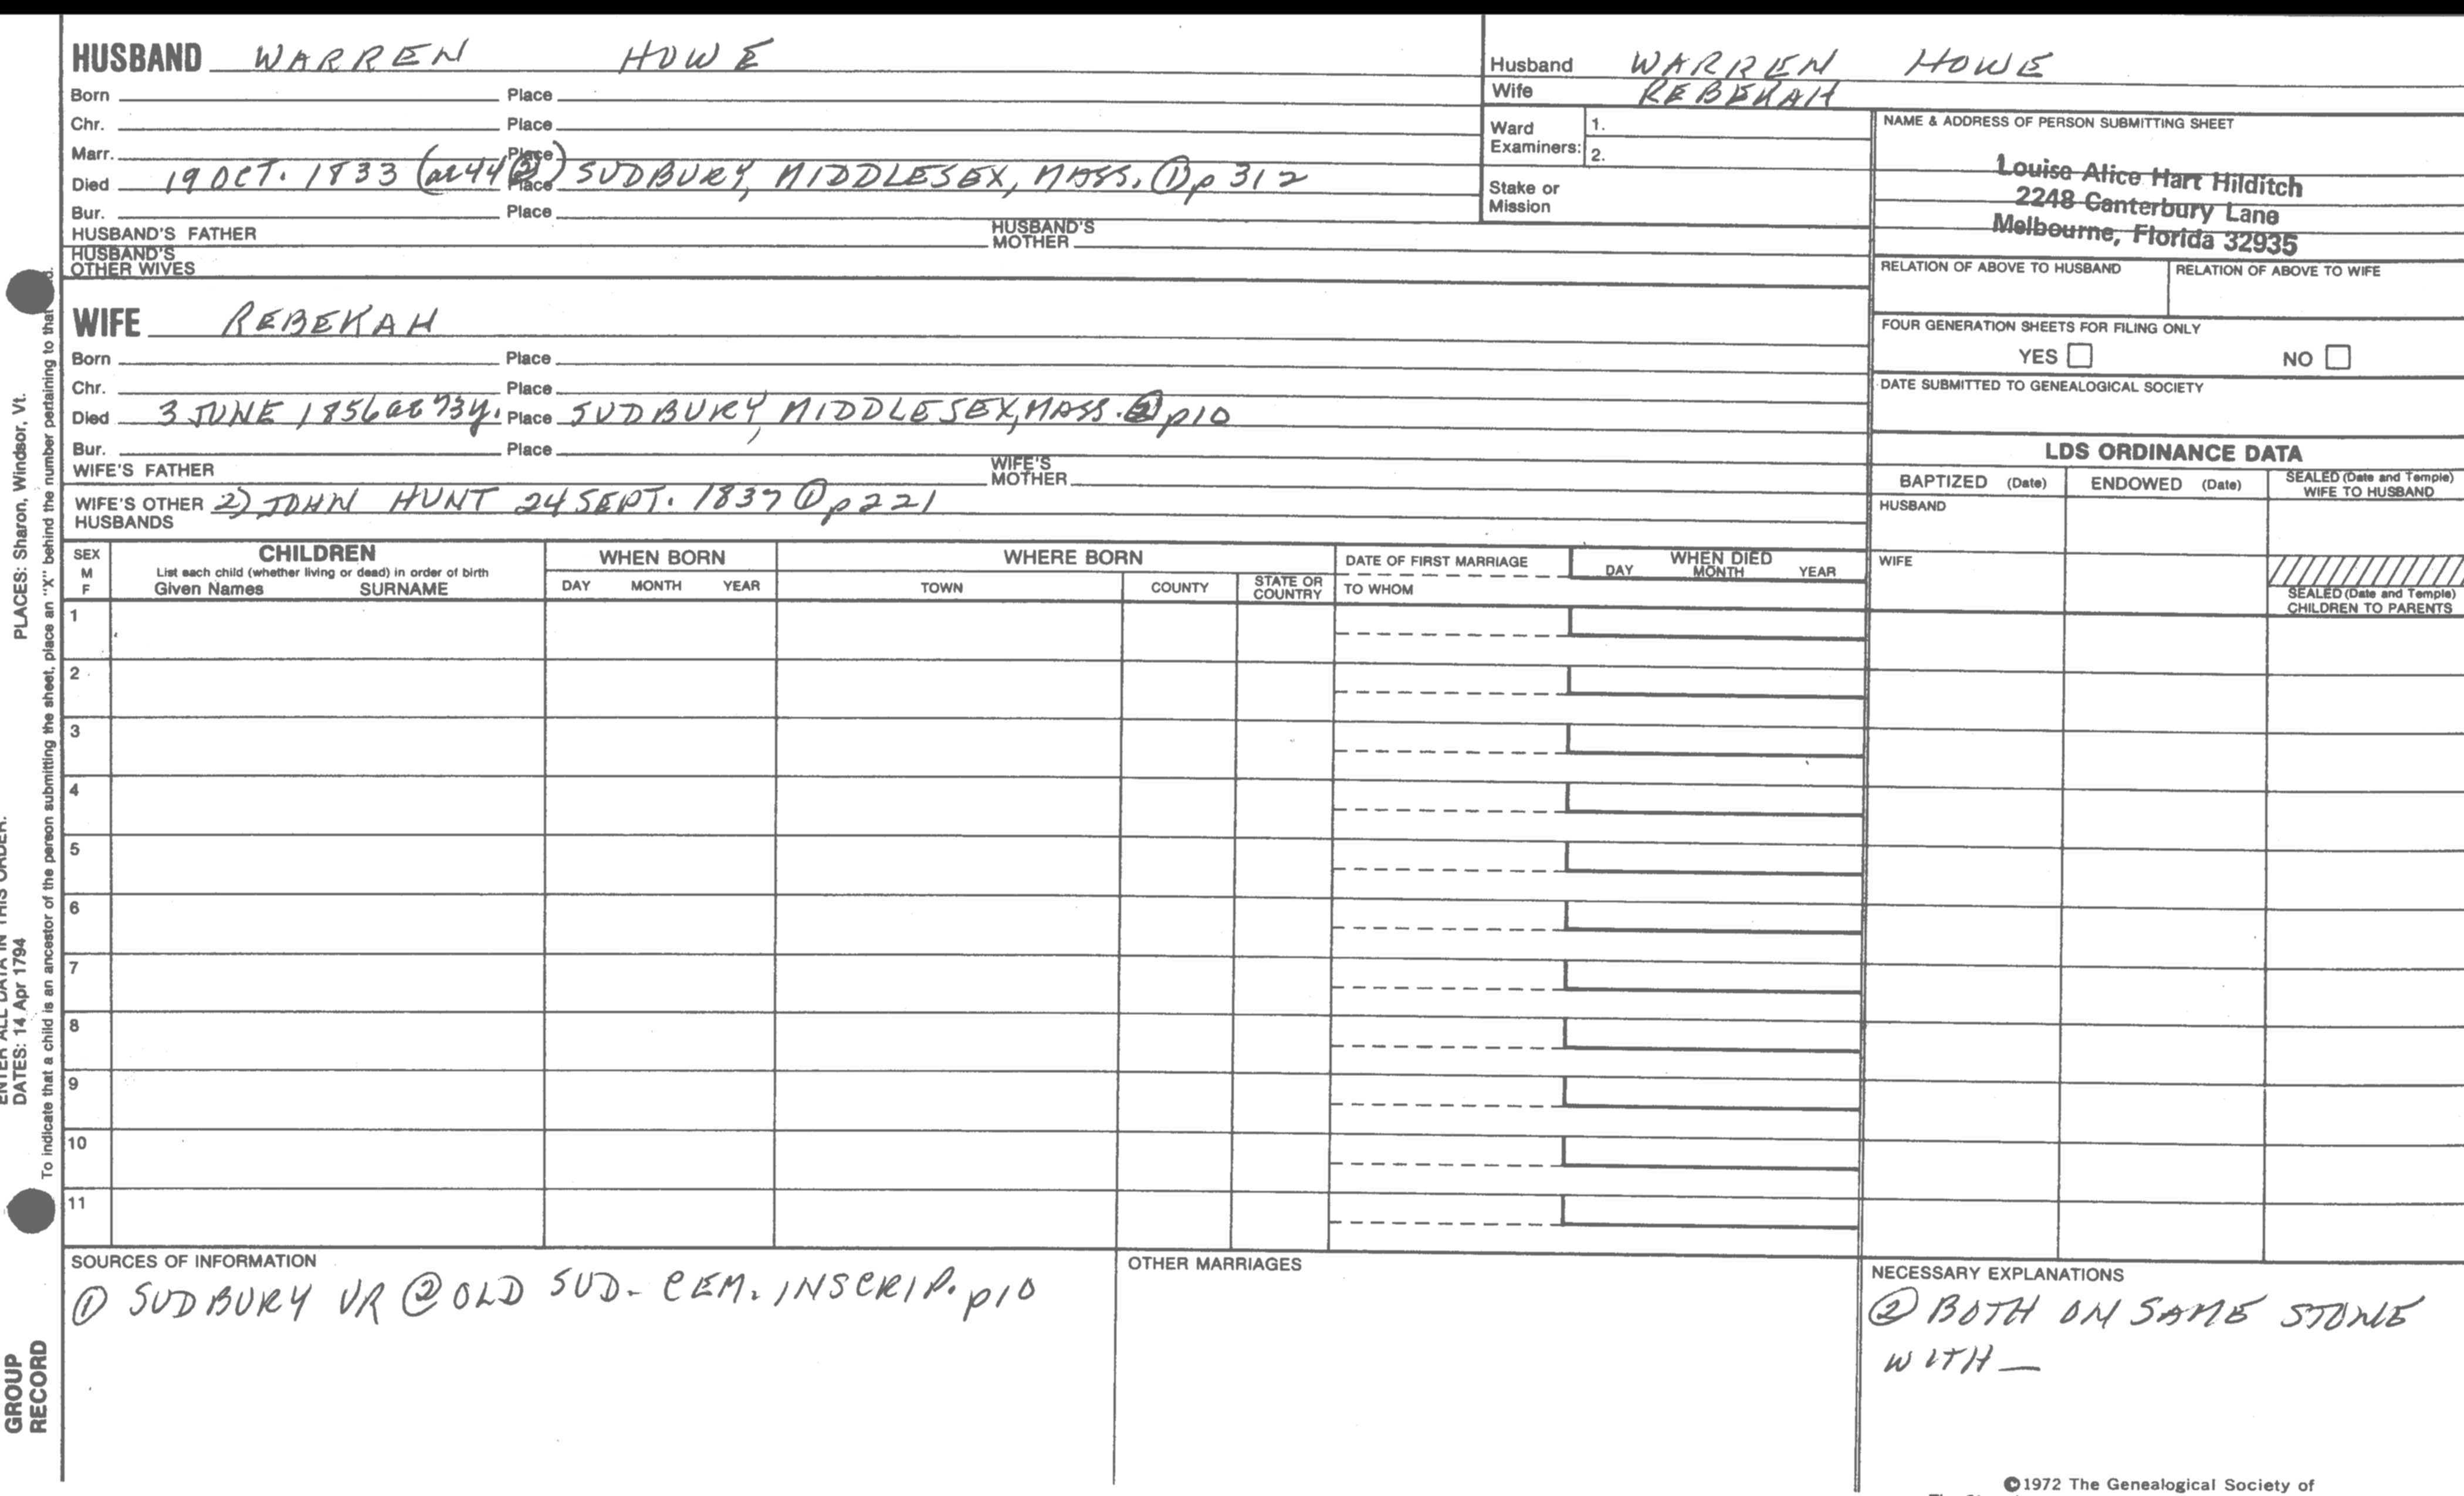 HUSBAND WARREN HOWE
Born Place
Chr. Place
Marr. Place
Died 19 OCT. 1833 (ae 44 ②) Place SUDBURY, MIDDLESEX, MASS. ① p 312
Bur. Place
HUSBAND'S FATHER HUSBAND'S MOTHER
HUSBAND'S OTHER WIVES
WIFE REBEKAH
Born Place
Chr. Place
Died 3 JUNE 1856 ae 73y. Place SUDBURY, MIDDLESEX, MASS. ② p10
Bur. Place
WIFE'S FATHER WIFE'S MOTHER
WIFE'S OTHER HUSBANDS 2) JOHN HUNT 24 SEPT. 1837 ① p221
Husband WARREN HOWE
Wife REBEKAH
Ward Examiners: 1.
2.
Stake or Mission
NAME & ADDRESS OF PERSON SUBMITTING SHEET
Louise Alice Hart Hilditch
2248 Canterbury Lane
Melbourne, Florida 32935
RELATION OF ABOVE TO HUSBAND RELATION OF ABOVE TO WIFE
FOUR GENERATION SHEETS FOR FILING ONLY
YES NO
DATE SUBMITTED TO GENEALOGICAL SOCIETY
LDS ORDINANCE DATA
BAPTIZED (Date) ENDOWED (Date) SEALED (Date and Temple) WIFE TO HUSBAND
HUSBAND
WIFE
SEALED (Date and Temple) CHILDREN TO PARENTS
SEX M F
CHILDREN
List each child (whether living or dead) in order of birth
Given Names SURNAME
WHEN BORN
DAY MONTH YEAR
WHERE BORN
TOWN COUNTY STATE OR COUNTRY
DATE OF FIRST MARRIAGE
TO WHOM
WHEN DIED
DAY MONTH YEAR
1
2
3
4
5
6
7
8
9
10
11
SOURCES OF INFORMATION
① SUDBURY VR ② OLD SUD- CEM. INSCRIP. p10
OTHER MARRIAGES
NECESSARY EXPLANATIONS
② BOTH ON SAME STONE
WITH —
©1972 The Genealogical Society of
PLACES: Sharon, Windsor, Vt.
ENTER ALL DATA IN THIS ORDER:
DATES: 14 Apr 1794
To indicate that a child is an ancestor of the person submitting the sheet, place an "X" behind the number pertaining to that
GROUP
RECORD